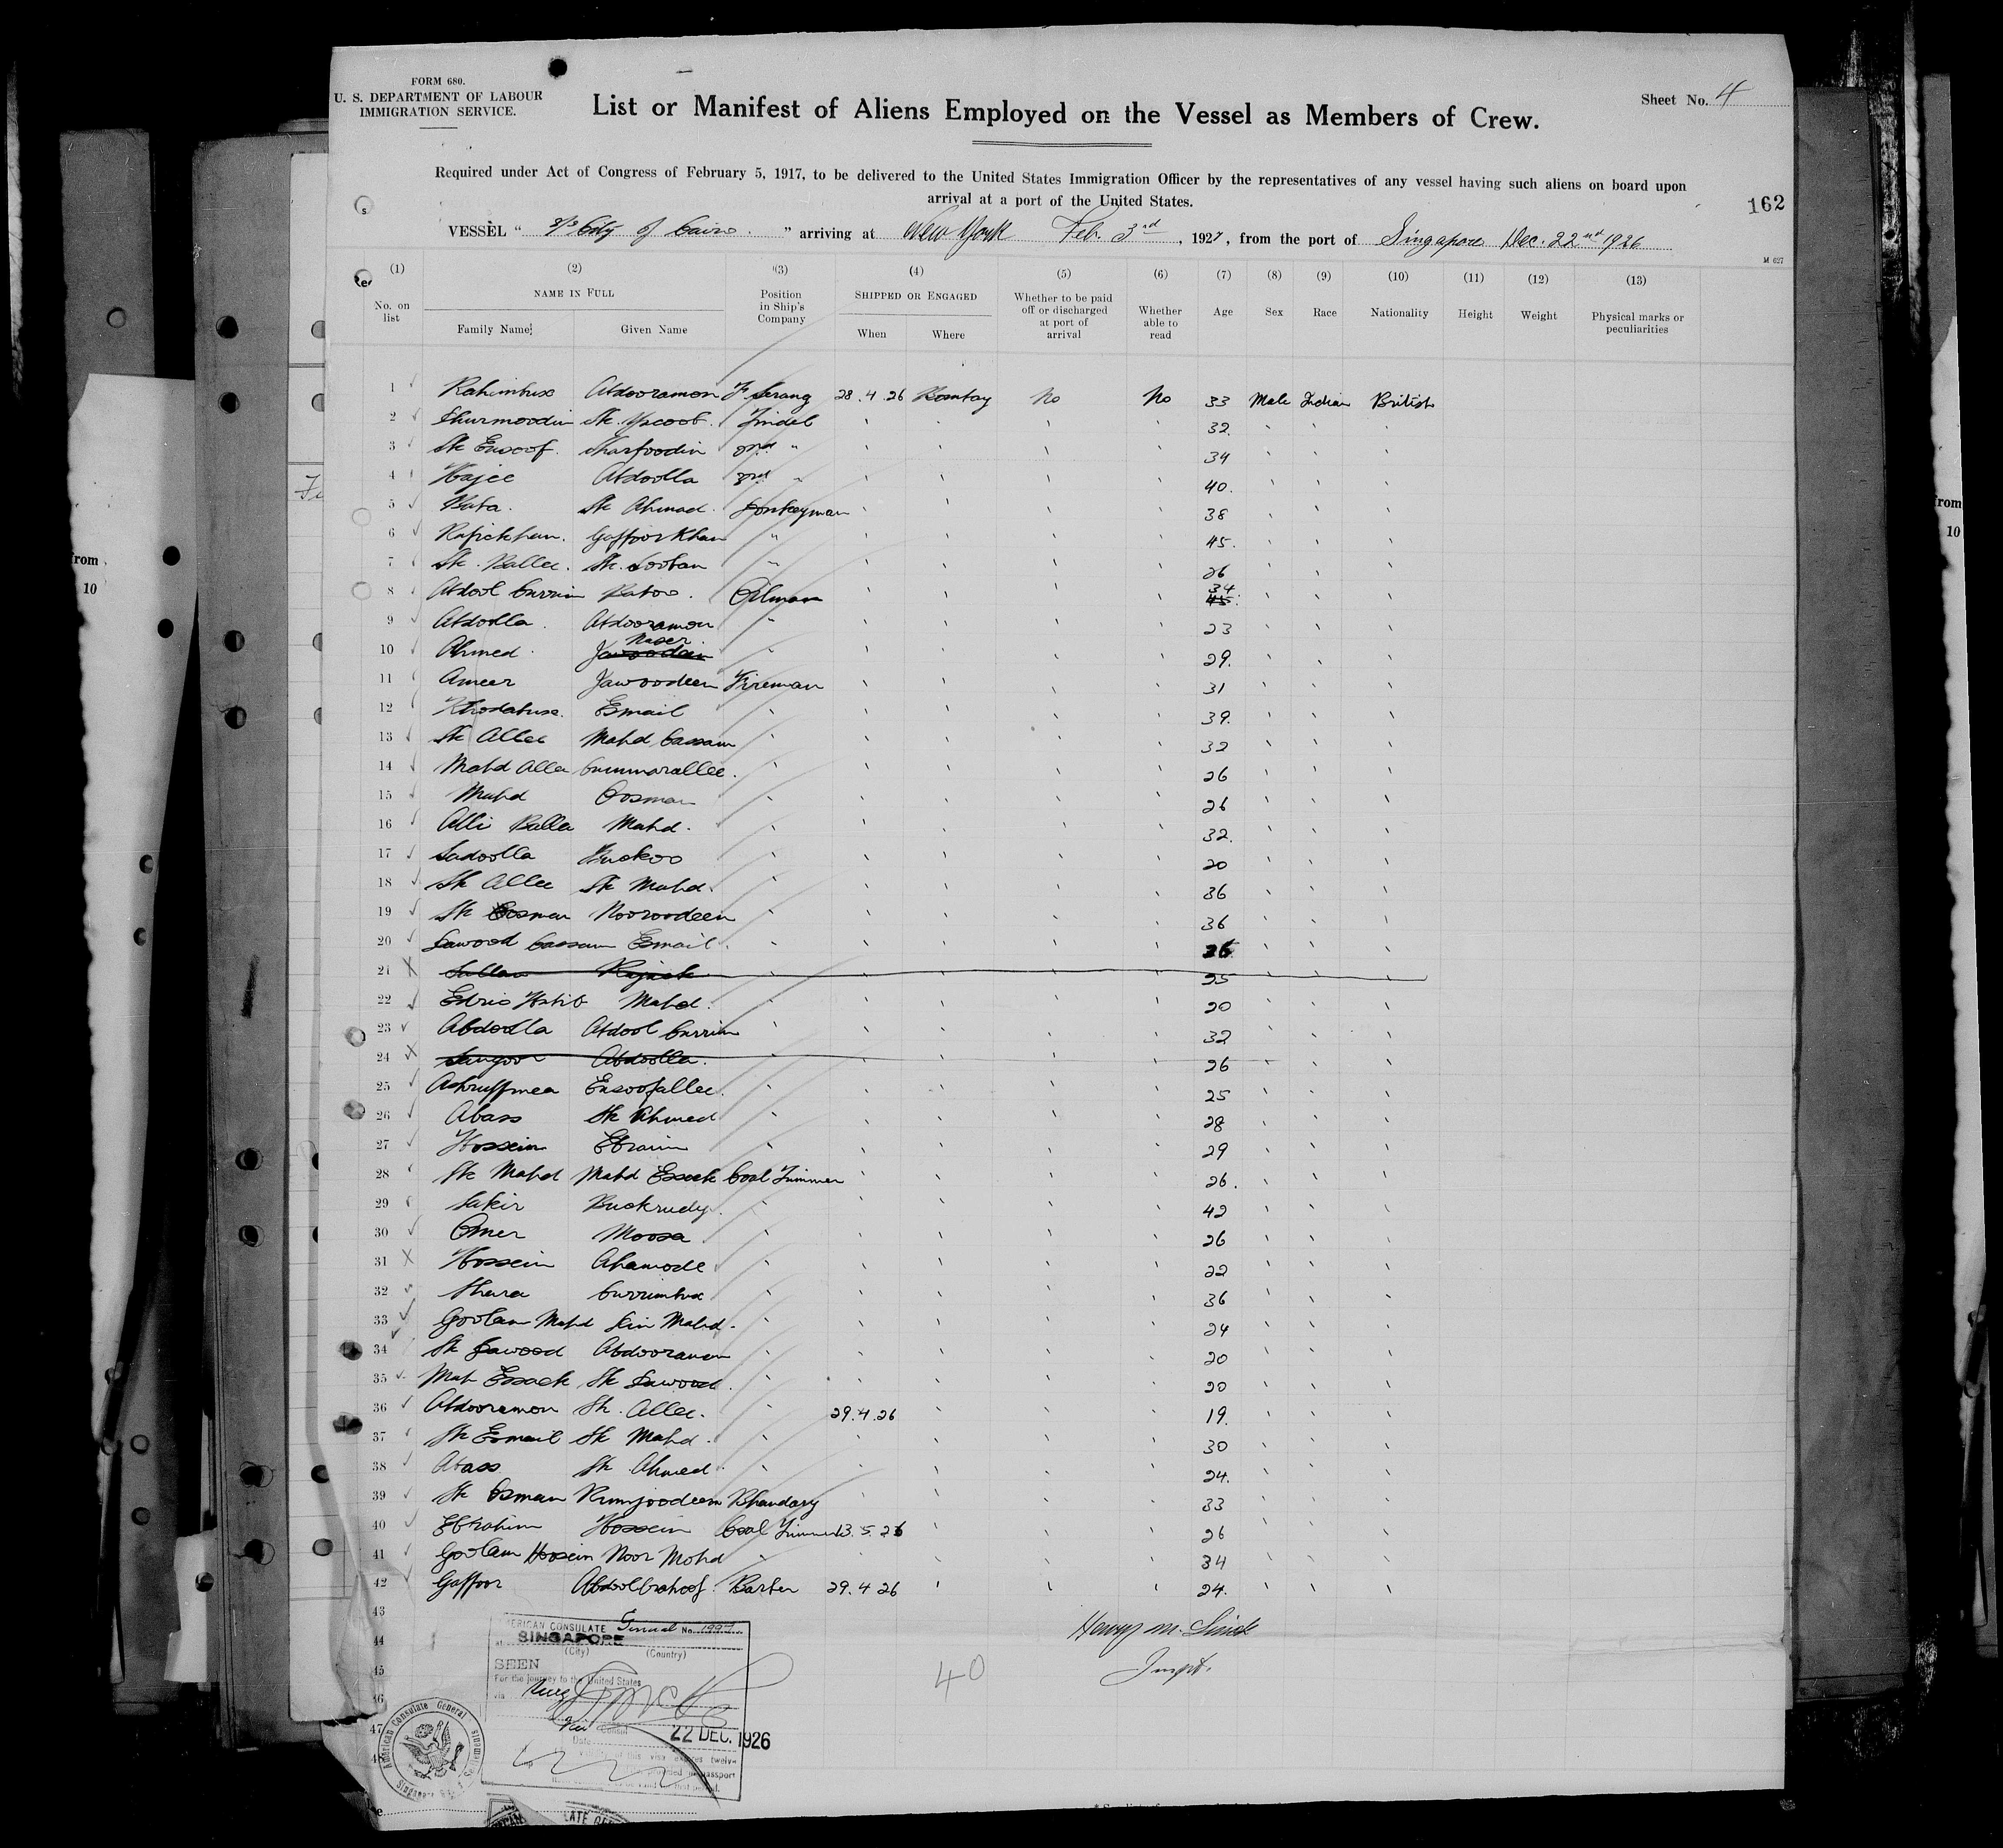 FORM 680.
U. S. DEPARTMENT OF LABOUR
IMMIGRATION SERVICE.
List or Manifest of Aliens Employed on the Vessel as Members of Crew.
Sheet No. 4
Required under Act of Congress of February 5, 1917, to be delivered to the United States Immigration Officer by the representatives of any vessel having such aliens on board upon
arrival at a port of the United States.
162
VESSEL " S/S City of Cairo. " arriving at New York Feb. 3rd, 1927, from the port of Singapore Dec. 22nd 1926
M 627
(1) (2) (3) (4) (5) (6) (7) (8) (9) (10) (11) (12) (13)
No. on list NAME IN FULL Family Name Given Name Position in Ship's Company SHIPPED OR ENGAGED When Where Whether to be paid off or discharged at port of arrival Whether able to read Age Sex Race Nationality Height Weight Physical marks or peculiarities
1 Rahimbux Abdooramon F. Serang 28.4.26 Bombay No No 33 Male Indian British
2 Shurmoodin Sk. Yacoob. Tindel ' ' ' ' 32. ' ' '
3 Sk Ensoof. Sharfoodin 2nd " ' ' ' ' 34 ' ' '
4 Hajee Abdoolla 3rd " ' ' ' ' 40. ' ' '
5 Bata. Sk Ahmad. Donkeyman ' ' ' ' 38 ' ' '
6 Rafickhan. Gaffoor Khan " ' ' ' ' 45. ' ' '
7 Sk. Ballee. Sk. Looban " ' ' ' ' 26 ' ' '
8 Abdool Currim Batoo. Oilman ' ' ' ' 34 45. ' ' '
9 Abdoolla. Abdooramon " ' ' ' ' 23 ' ' '
10 Ahmed. Jawoodeen Naser. ' ' ' ' ' 29. ' ' '
11 Ameer Jawoodeen Fireman ' ' ' ' 31 ' ' '
12 Khodabux. Esmail ' ' ' ' ' 39. ' ' '
13 Sk Allee Mahd Cassam ' ' ' ' ' 32 ' ' '
14 Mahd Alla Cummorallee. ' ' ' ' ' 26 ' ' '
15 Mahd Oosman ' ' ' ' ' 26 ' ' '
16 Alli Balla Mahd. ' ' ' ' ' 32. ' ' '
17 Sadoolla Buckoo ' ' ' ' ' 20 ' ' '
18 Sk Allee Sk Mahd. ' ' ' ' ' 36 ' ' '
19 Sk Oosman Nooroodeen ' ' ' ' ' 36 ' ' '
20 Dawood Cassam Esmail. ' ' ' ' ' 26 ' ' '
21 ' ' ' ' ' 25 ' ' '
22 Edris Habib Mahd. ' ' ' ' ' 20 ' ' '
23 Abdoolla Abdool Currim ' ' ' ' ' 32 ' ' '
24 Abdoolla. ' ' ' ' ' 26 ' ' '
25 Ashruffmea Ensoofallee. ' ' ' ' ' 25 ' ' '
26 Abass Sk Ahmed ' ' ' ' ' 28 ' ' '
27 Hossein Ebraim ' ' ' ' ' 29 ' ' '
28 Sk Mahd Mahd Essack Coal Trimmer ' ' ' ' 26. ' ' '
29 Fakir Buckrudy. ' ' ' ' ' 42 ' ' '
30 Omer Moosa ' ' ' ' ' 26 ' ' '
31 Hossein Ahamode ' ' ' ' ' 22 ' ' '
32 Shara Currimbux ' ' ' ' ' 36 ' ' '
33 Goolam Mahd Din Mahd. ' ' ' ' ' 24 ' ' '
34 Sk Dawood Abdooramon ' ' ' ' ' 20 ' ' '
35 Mah Essack Sk Dawood. ' ' ' ' ' 20 ' ' '
36 Abdooramon Sk. Allee. ' 29.4.26 ' ' ' 19. ' ' '
37 Sk Esmail Sk Mahd. ' ' ' ' ' 30 ' ' '
38 Abass Sk. Ahmed ' ' ' ' ' 24. ' ' '
39 Sk Osman Rumjoodeen Bhandary ' ' ' ' 33 ' ' '
40 Ebrahim Hossein Coal Trimmer 13.5.26 ' ' ' 26 ' ' '
41 Goolam Hossein Noor Mohd ' ' ' ' ' 34 ' ' '
42 Gaffoor Barber 29.4.26 ' ' ' 24. ' ' '
43
44
45
46
47
48
Henry M.
Inspt.
40
AMERICAN CONSULATE General No. 1997
at SINGAPORE
(City) (Country)
SEEN
For the journey to the United States
via Suez
Vice Consul
Date 22 DEC. 1926
American Consulate General
from
10
from
10